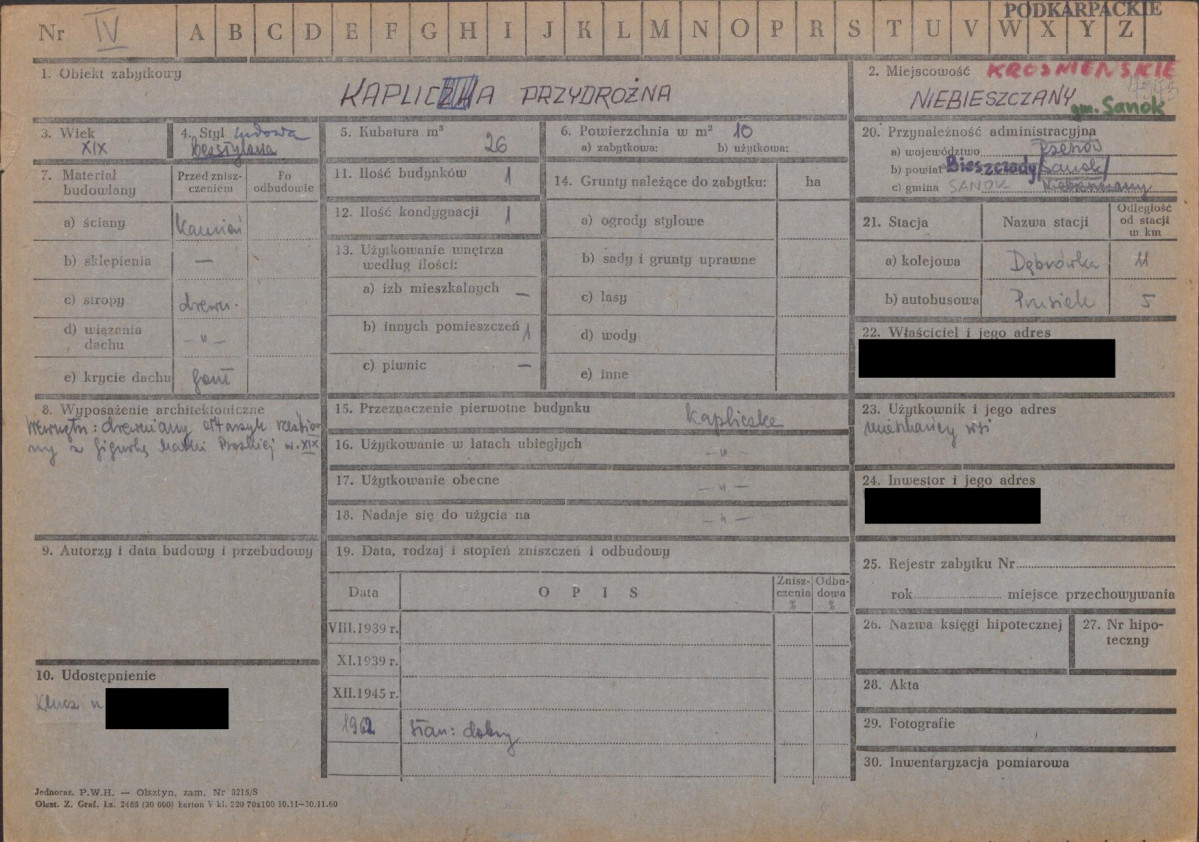 PODKARPACKIE
Nr IV A B C D E F G H I J K L M N O P R S T U V W X Y Z
1. Obiekt zabytkowy
KAPLICZKA PRZYDROŻNA
2. Miejscowość KROŚNIEŃSKIE
NIEBIESZCZANY
gm. Sanok
3. Wiek
XIX
4. Styl ludowa
bezstylowa
5. Kubatura m³
26
6. Powierzchnia w m² 10
a) zabytkowa: b) użytkowa:
7. Materiał budowlany
Przed zniszczeniem
Po odbudowie
a) ściany Kamień
b) sklepienia —
c) stropy drewn.
d) wiązania dachu —„—
e) krycie dachu gont
8. Wyposażenie architektoniczne
Wewnątrz: drewniany ołtarzyk rzeźbio-
ny z figurką Matki Boskiej w. XIX
9. Autorzy i data budowy i przebudowy
10. Udostępnienie
Klucz u
11. Ilość budynków 1
12. Ilość kondygnacji 1
13. Użytkowanie wnętrza
według ilości:
a) izb mieszkalnych —
b) innych pomieszczeń 1
c) piwnic —
14. Grunty należące do zabytku: ha
a) ogrody stylowe
b) sady i grunty uprawne
c) lasy
d) wody
e) inne
15. Przeznaczenie pierwotne budynku kapliczka
16. Użytkowanie w latach ubiegłych —„—
17. Użytkowanie obecne —„—
18. Nadaje się do użycia na —„—
19. Data, rodzaj i stopień zniszczeń i odbudowy
Data OPIS Zniszczenia % Odbudowa %
VIII.1939 r.
XI.1939 r.
XII.1945 r.
1962 stan: dobry
20. Przynależność administracyjna
a) województwo Rzeszów
b) powiat Bieszczady Sanok
c) gmina SANOK Niebieszczany
21. Stacja Nazwa stacji Odległość od stacji w km
a) kolejowa Dąbrówka 11
b) autobusowa Prusiek 5
22. Właściciel i jego adres
23. Użytkownik i jego adres
mieszkańcy wsi
24. Inwestor i jego adres
25. Rejestr zabytku Nr
rok miejsce przechowywania
26. Nazwa księgi hipotecznej
27. Nr hipoteczny
28. Akta
29. Fotografie
30. Inwentaryzacja pomiarowa
Jednoraz. P.W.H. — Olsztyn, zam. Nr 3215/S
Olszt. Z. Graf. Lz. 2485 (30 000) karton V kl. 220 70x100 10.11—30.11.60